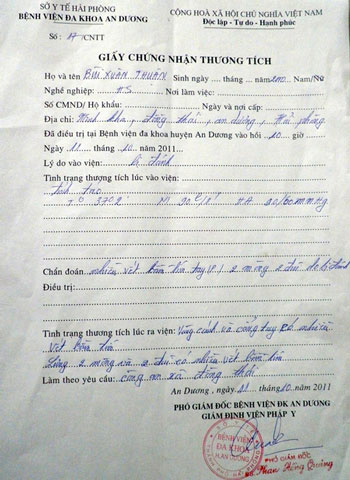 SỞ Y TẾ HẢI PHÒNG
BỆNH VIỆN ĐA KHOA AN DƯƠNG
CỘNG HOÀ XÃ HỘI CHỦ NGHĨA VIỆT NAM
Độc lập - Tự do - Hạnh phúc
Số: 17/CNTT
GIẤY CHỨNG NHẬN THƯƠNG TÍCH
Họ và tên BÙI XUÂN THUẬN Sinh ngày .... tháng ... năm 2000 Nam/Nữ
Nghề nghiệp: HS Nơi làm việc:
Số CMND/ Hộ khẩu: Ngày và nơi cấp:
Địa chỉ: Minh kha, đồng thái, an dương, Hải phòng
Đã điều trị tại Bệnh viện đa khoa huyện An Dương vào hồi 10 giờ
Ngày 11 tháng 10 năm 2011...
Lý do vào viện: bị đánh
Tình trạng thương tích lúc vào viện:
tỉnh táo
T0 37 M 90 HA 90/60 mmHg
Chẩn đoán nhiều vết bầm tím tay 2 mông 2 đùi do bị đánh
Điều trị:
Tình trạng thương tích lúc ra viện: Vùng cánh và cẳng tay có nhiều
vết bầm tím
2 mông và 2 đùi có nhiều vết bầm tím
Làm theo yêu cầu: công an xã đồng thái
An Dương, ngày 11 tháng 10 năm 2011
PHÓ GIÁM ĐỐC BỆNH VIỆN ĐK AN DƯƠNG
GIÁM ĐỊNH VIÊN PHÁP Y
BỆNH VIỆN
ĐA KHOA
H.AN DƯƠNG
PHÓ GIÁM ĐỐC
Phan Hồng Quảng